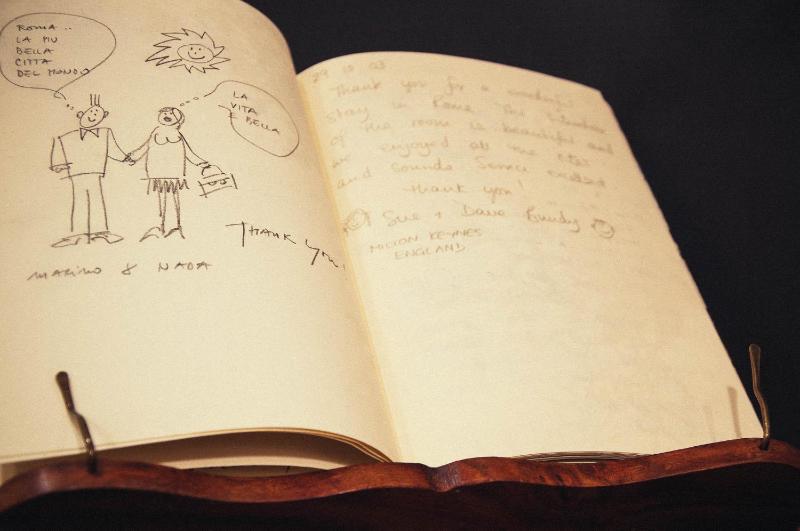 ROMA..
LA PIU
BELLA
CITTA
DEL MONDO
LA
VITA
E BELLA
THANK YOU!
MARINO & NADA
29 10 03
Thank you for a wonderful
stay in Rome. The
of the room is beautiful and
we enjoyed all the
and sounds Service excellent
Thank you!
Sue + Dave
MILTON KEYNES
ENGLAND